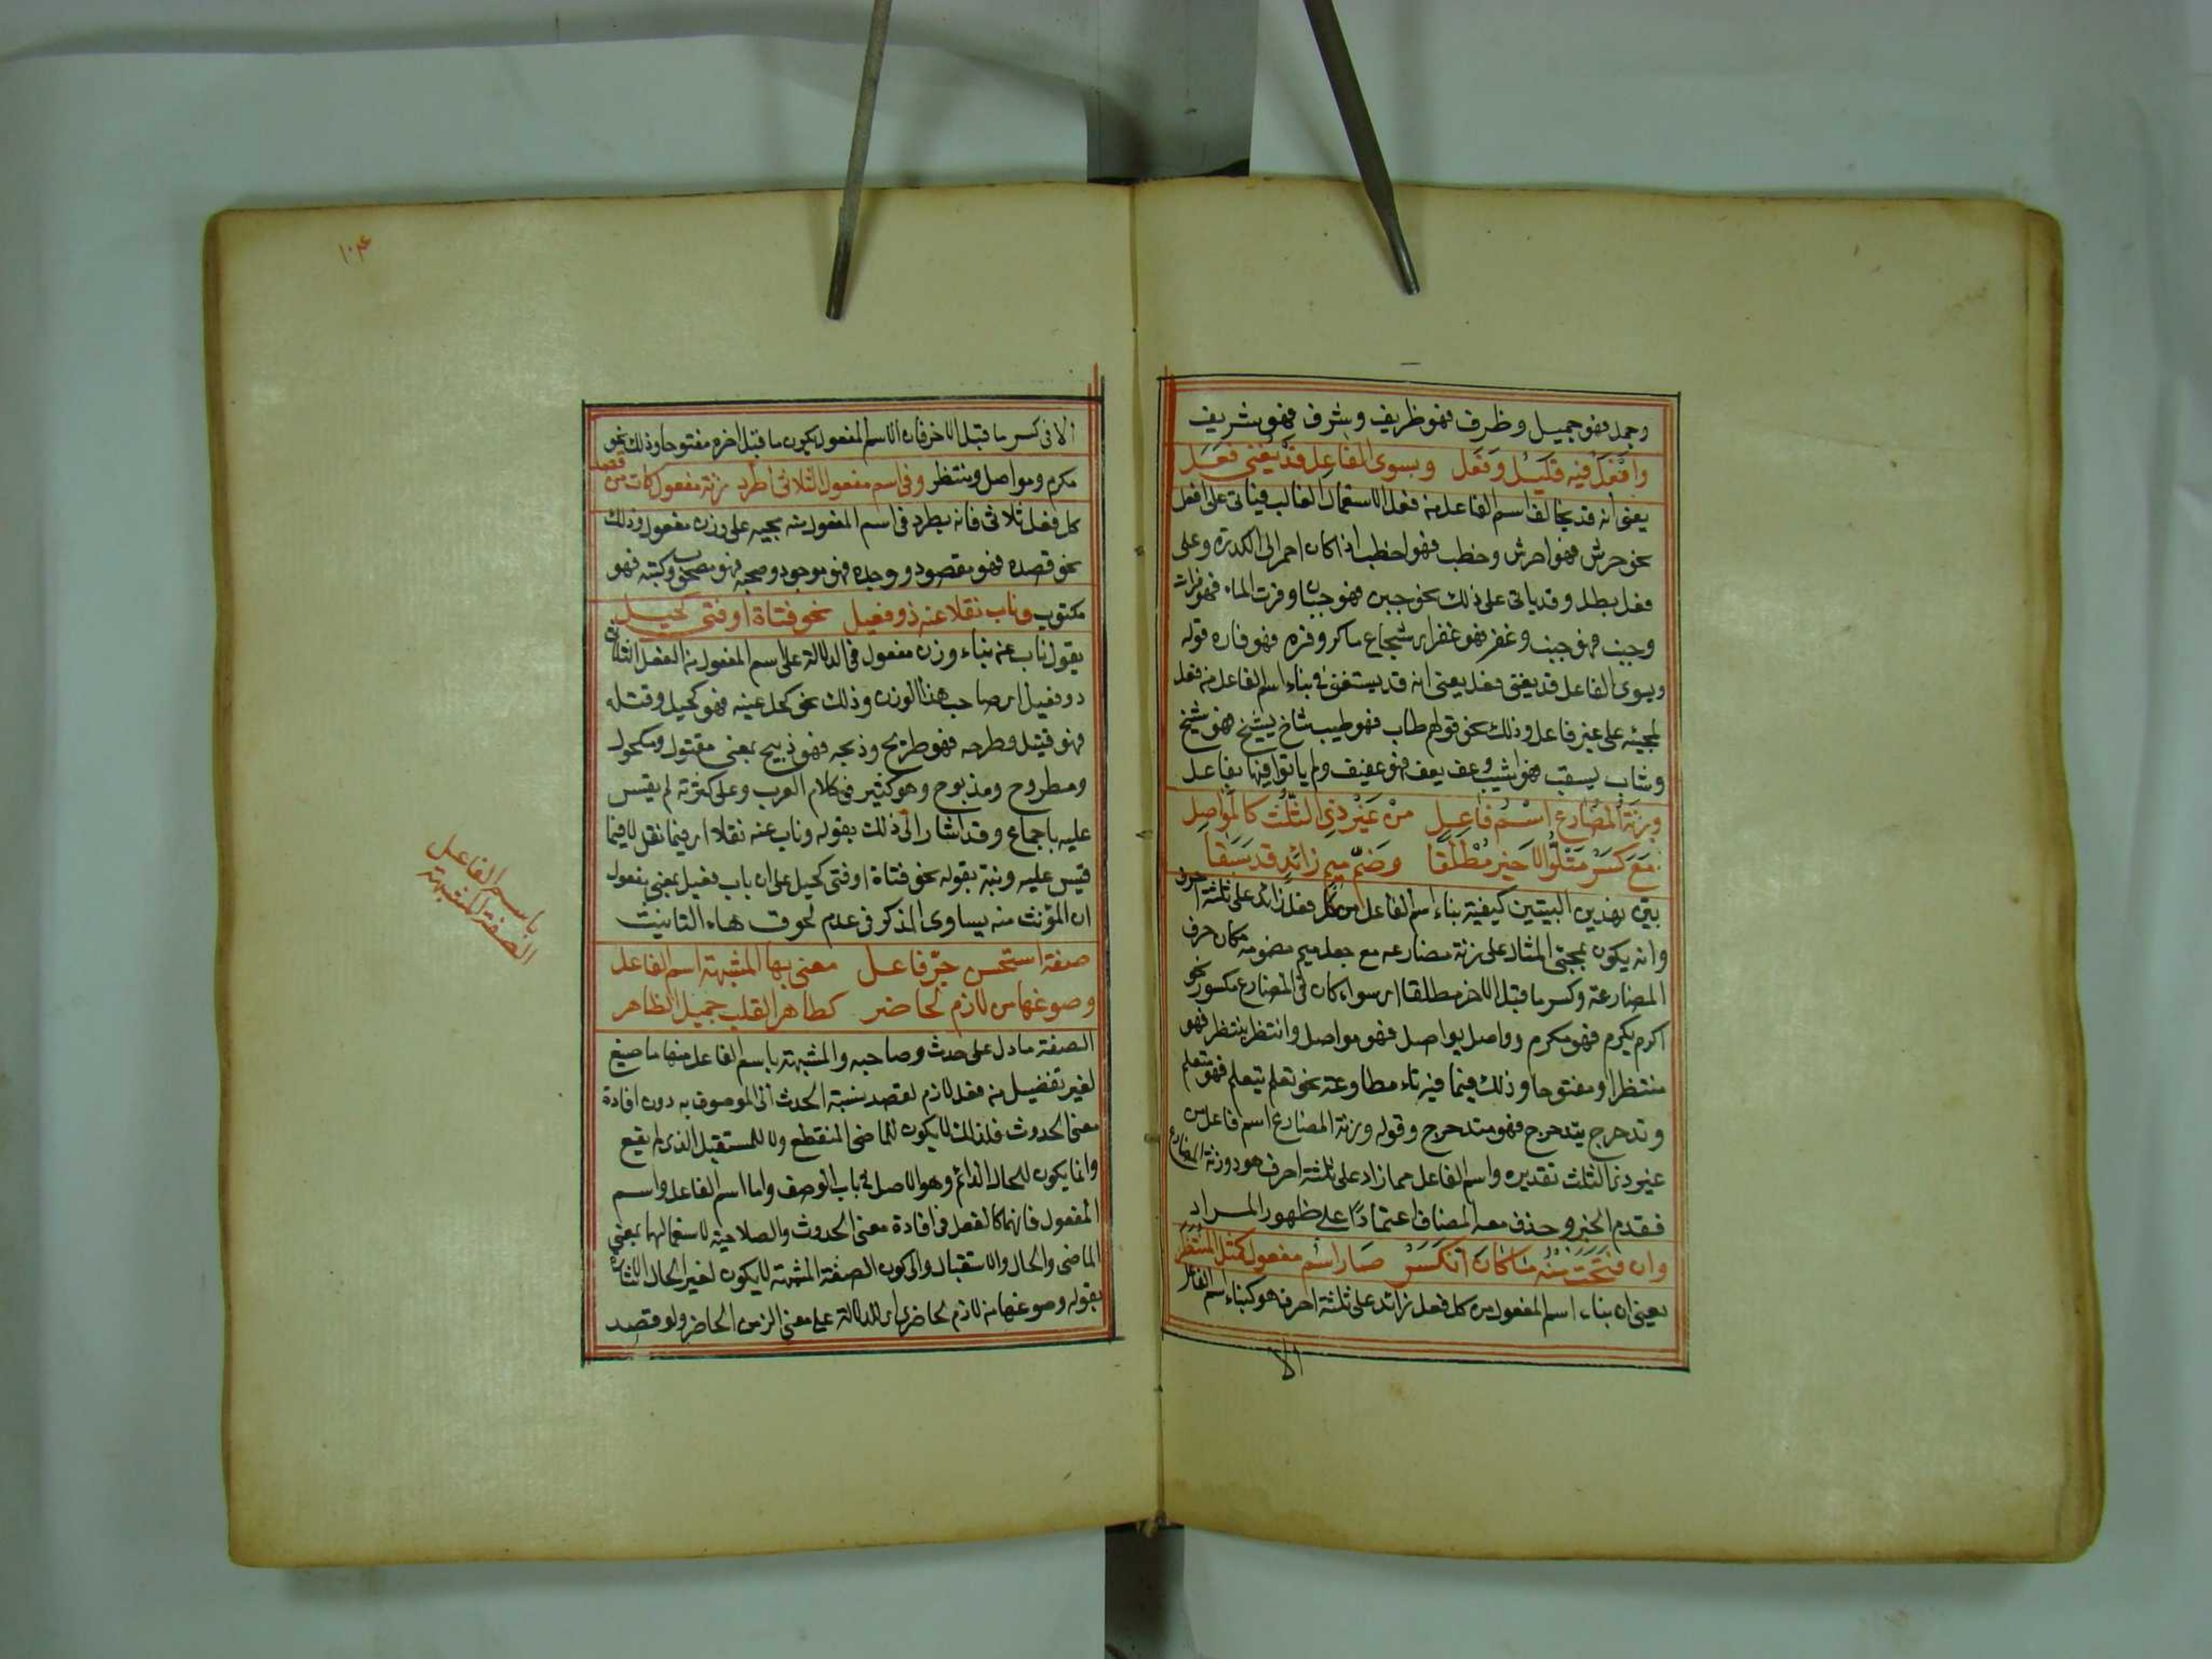 وجمل فهو جميل وظرف فهو ظريف وشرف فهو شريف
وافعل فيه قليل وفعل وبسوى الفاعل قد يغنى فعل
يعنى انه قد يخالف اسم الفاعل من فعل الاستعمال الغالب فياتى على افعل
نحو حرش فهو احرش وخطب فهو اخطب اذا كان احمر الى الكدرة وعلى
فعل بطل وقد ياتى على ذلك نحو جبن فهو جبان وفرت الماء فهو فرات
وجنب فهو جنب وغفر فهو غفر اى شجاع ماكر وفره فهو فاره قوله
وبسوى الفاعل قد يغنى فعل يعنى انه قد يستغنى فى بناء اسم الفاعل من فعل
لمجيئه على غير فاعل وذلك نحو قولهم طاب فهو طيب شاخ يشيخ فهو شيخ
وشاب يشيب فهو اشيب وعف يعف فهو عفيف ولم ياتوا فيها بفاعل
وزنة المضارع اسم فاعل من غير ذى الثلث كالمواصل
مع كسر متلو الاخير مطلقا وضم ميم زائد قد سبقا
بين بهذين البيتين كيفية بناء اسم الفاعل من كل فعل زائد على ثلثة احرف
وانه يكون بمجئ المثال على زنة مضارعه مع جعل ميم مضمومة مكان حرف
المضارعة وكسر ما قبل الاخر مطلقا اى سواء كان فى المضارع مكسورا نحو
اكرم يكرم فهو مكرم وواصل يواصل فهو مواصل وانتظر ينتظر فهو
منتظر او مفتوحا وذلك فيما فيه تاء مطاوعة نحو تعلم يتعلم فهو متعلم
وتدحرج يتدحرج فهو متدحرج وقوله وزنة المضارع اسم فاعل من
غير ذى الثلث تقديره واسم الفاعل مما زاد على ثلثة احرف هو ذو زنة المضارع
فقدم الخبر وحذف معه المضاف اعتمادا على ظهور المراد
وان فتحت منه ما كان انكسر صار اسم مفعول كمثل المنتظر
يعنى ان بناء اسم المفعول من كل فعل زائد على ثلثة احرف هو كبناء اسم الفاعل
الا
١٠٤
الا فى كسر ما قبل الاخر فان اسم المفعول يكون ما قبل اخره مفتوحا وذلك نحو
مكرم ومواصل ومنتظر وفى اسم مفعول الثلاثى اطرد زنة مفعول كات من قصد
كل فعل ثلاثى فانه يطرد فى اسم المفعول منه مجيه على وزن مفعول وذلك
نحو قصده فهو مقصود ووجده فهو موجود وصحبه فهو مصحوب وكتبه فهو
مكتوب وناب نقلا عنه ذو فعيل نحو فتاة او فتى كحيل
يقول ناب عن بناء وزن مفعول فى الدلالة على اسم المفعول من الفعل الثلاثى
ذو فعيل اى صاحب هذا الوزن وذلك نحو كحل عينه فهو كحيل وقتله
فهو قتيل وطرحه فهو طريح وذبحه فهو ذبيح بمعنى مقتول ومكحول
ومطروح ومذبوح وهو كثير فى كلام العرب وعلى كثرته لم يقس
عليه باجماع وقد اشار الى ذلك بقوله وناب عنه نقلا اى فيما نقل لا فيما
قيس عليه ونبه بقوله نحو فتاة او فتى كحيل على ان باب فعيل بمعنى مفعول
ان المؤنث منه يساوى المذكر فى عدم لحوق هاء التانيث
صفة استحسن جر فاعل معنى بها المشبهة اسم الفاعل
وصوغها من لازم لحاضر كطاهر القلب جميل الظاهر
الصفة ما دل على حدث وصاحبه والمشبهة باسم الفاعل منها ما صيغ
لغير تفضيل من فعل لازم لقصد نسبة الحدث الى الموصوف به دون افادة
معنى الحدوث فلذلك لا يكون للماضى المنقطع ولا للمستقبل الذى لم يقع
وانما يكون للحال الدائم وهو الاصل فى باب الوصف واما اسم الفاعل واسم
المفعول فانهما كالفعل فى افادة معنى الحدوث والصلاحية لاستعمالهما بمعنى
الماضى والحال والاستقبال والى كون الصفة المشبهة لا يكون لغير الحال اشار
بقوله وصوغها من لازم لحاضر اى للدلالة على معنى الزمن الحاضر ولو قصد
باسم الفاعل
الصفة المشبهة